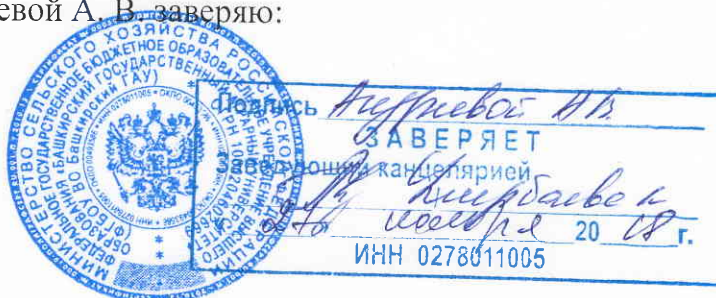 евой А. В. заверяю:
МИНИСТЕРСТВО СЕЛЬСКОГО ХОЗЯЙСТВА РОССИЙСКОЙ ФЕДЕРАЦИИ
ФЕДЕРАЛЬНОЕ ГОСУДАРСТВЕННОЕ БЮДЖЕТНОЕ ОБРАЗОВАТЕЛЬНОЕ УЧРЕЖДЕНИЕ ВЫСШЕГО
ОБРАЗОВАНИЯ «БАШКИРСКИЙ ГОСУДАРСТВЕННЫЙ АГРАРНЫЙ УНИВЕРСИТЕТ»
(ФГБОУ ВО Башкирский ГАУ)
ИНН 0278011005
Подпись Андриевой А.В.
ЗАВЕРЯЕТ
Заведующий канцелярией
27 ноября 20 18 г.
ИНН 0278011005